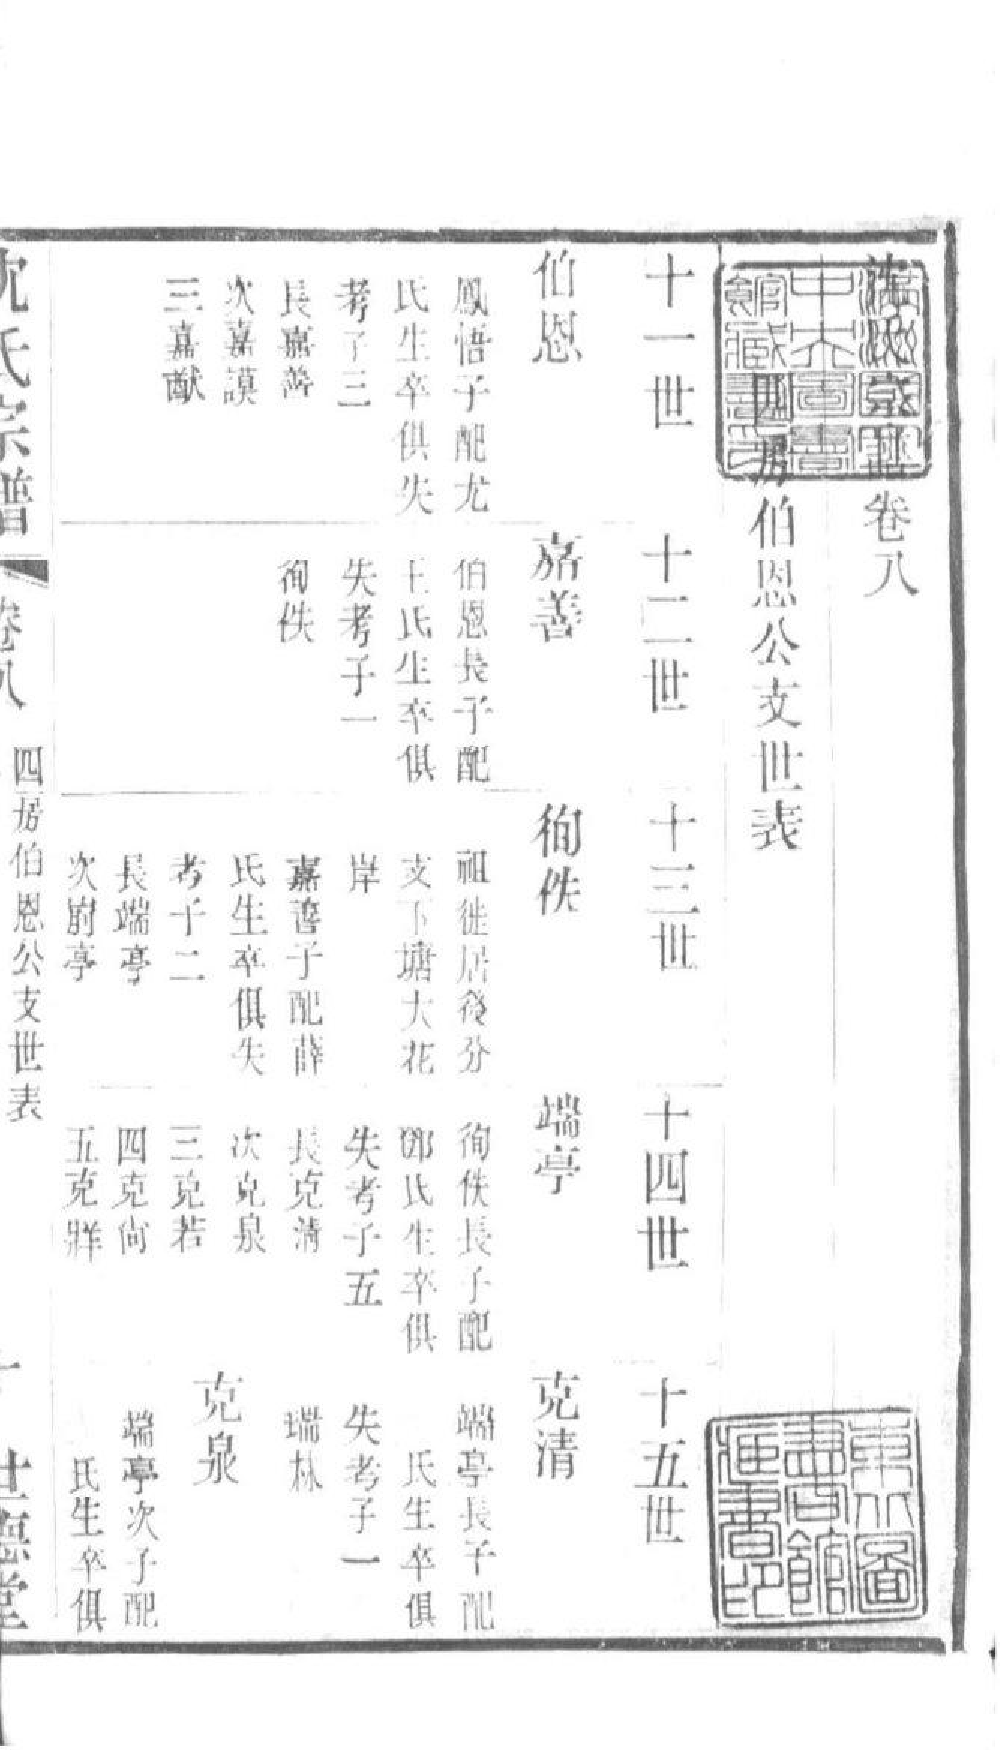 沈氏宗譜卷八
四房伯恩公支世表
十一世
十二世
十三世
十四世
十五世
伯恩
鳳悟子配尤
氏生卒俱失
考子三
長嘉善
次嘉謨
三嘉猷
嘉善
伯恩長子配
王氏生卒俱
失考子一
徇佚
徇佚
祖徙居後分
支下塘大花
岸
嘉善子配薛
氏生卒俱失
考子二
長端亭
次尌亭
端亭
徇佚長子配
鄧氏生卒俱
失考子五
長克清
次克泉
三克若
四克尙
五克牂
克清
端亭長子配
氏生卒俱
失考子一
瑞林
克泉
端亭次子配
氏生卒俱
沈氏宗譜
卷八
四房伯恩公支世表
一
世德堂